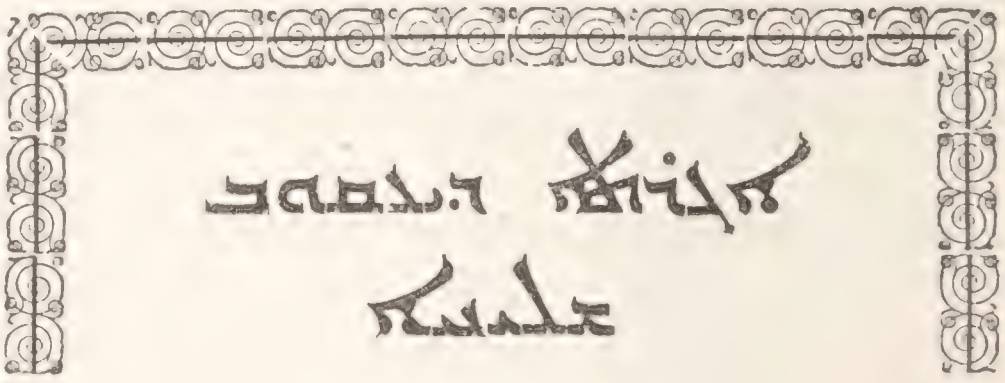 ܐܓܪܬܐ ܕܝܥܩܘܒ
ܫܠܝܚܐ